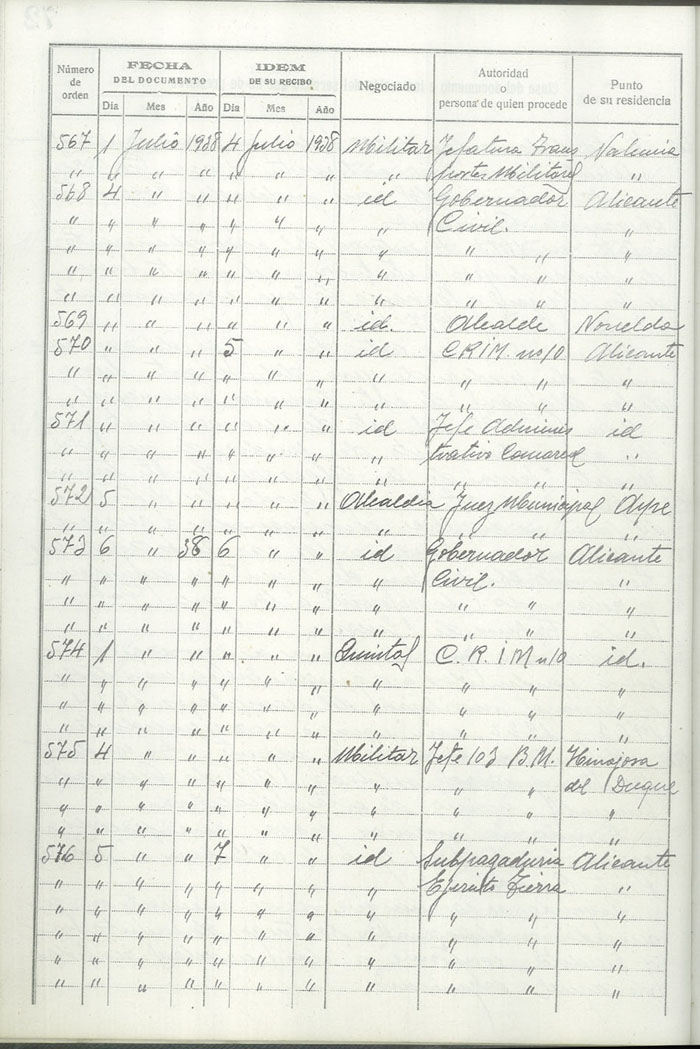 Número de orden FECHA DEL DOCUMENTO IDEM DE SU RECIBO Negociado Autoridad o persona de quien procede Punto de su residencia
Día Mes Año Día Mes Año
567 1 Julio 1938 4 Julio 1938 Militar Jefatura Trans Valencia
" " " " " " " " portes Militares "
568 4 " " " " " id Gobernador Alicante
" " " " " " " " Civil. "
" " " " " " " " " " "
" " " " " " " " " " "
" " " " " " " " " " "
569 " " " " " " id. Alcalde Novelda
570 " " " 5 " " id CRIM nº 10 Alicante
" " " " " " " " " " "
" " " " " " " " " " "
571 " " " " " " id Jefe Adminis id
" " " " " " " " trativo Comarcal "
" " " " " " " " " " "
572 5 " " " " " Alcaldia Juez Municipal Aspe
" " " " " " " " " " "
573 6 " 38 6 " " id Gobernador Alicante
" " " " " " " " Civil. "
" " " " " " " " " " "
" " " " " " " " " " "
574 1 " " " " " Quintas C. R. I M nº 10 id.
" " " " " " " " " " "
" " " " " " " " " " "
" " " " " " " " " " "
575 4 " " " " " Militar Jefe 103 B.M. Hinojosa
" " " " " " " " " " del Duque
" " " " " " " " " " "
" " " " " " " " " " "
576 5 " " 7 " " id Subpagaduria Alicante
" " " " " " " " Ejercito Tierra "
" " " " " " " " " " "
" " " " " " " " " " "
" " " " " " " " " " "
" " " " " " " " " " "